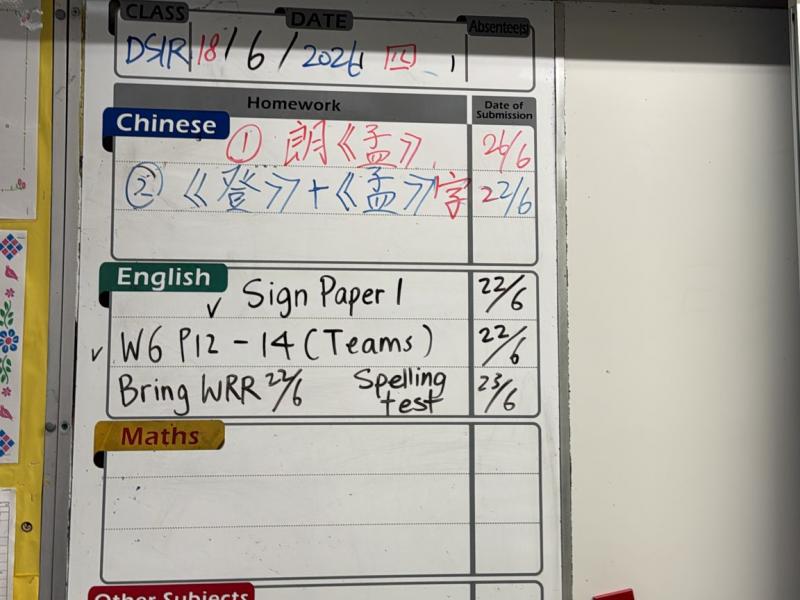 CLASS DATE Absentee(s)
18/6/2026 四 1
Homework Date of Submission
Chinese
① 朗《孟》 26/6
② 《登》+《孟》字 22/6
English
✓ Sign Paper 1 22/6
✓ W6 P12 - 14 (Teams) 22/6
Bring WRR 22/6 Spelling test 23/6
Maths
Other Subjects